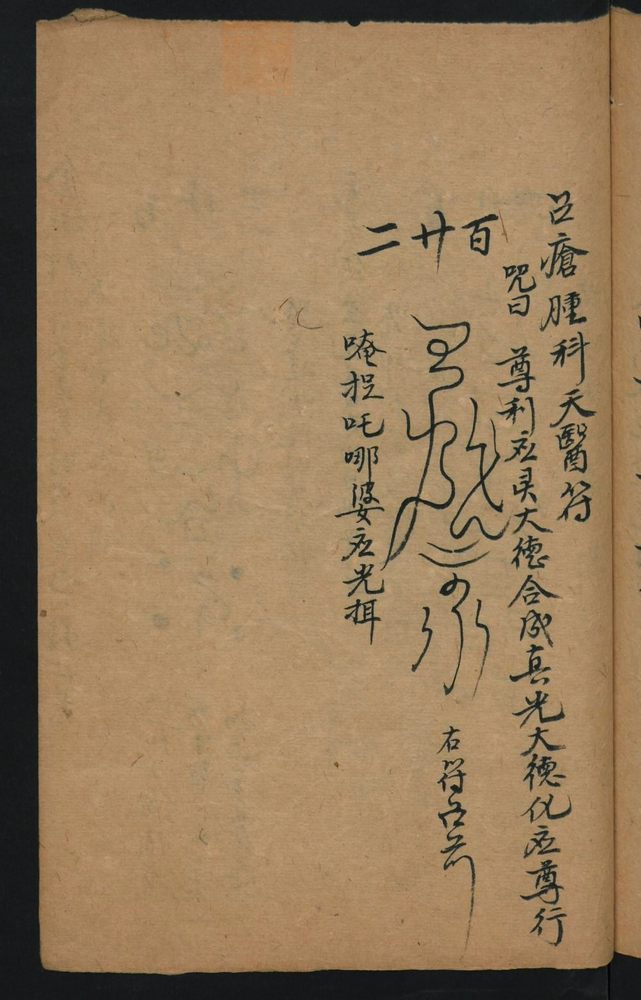 召瘡腫科天醫符
咒曰 尊利应灵大德合成真光大德化应尊行
百廿二
右符召前
唵捉吒哪婆应光揖